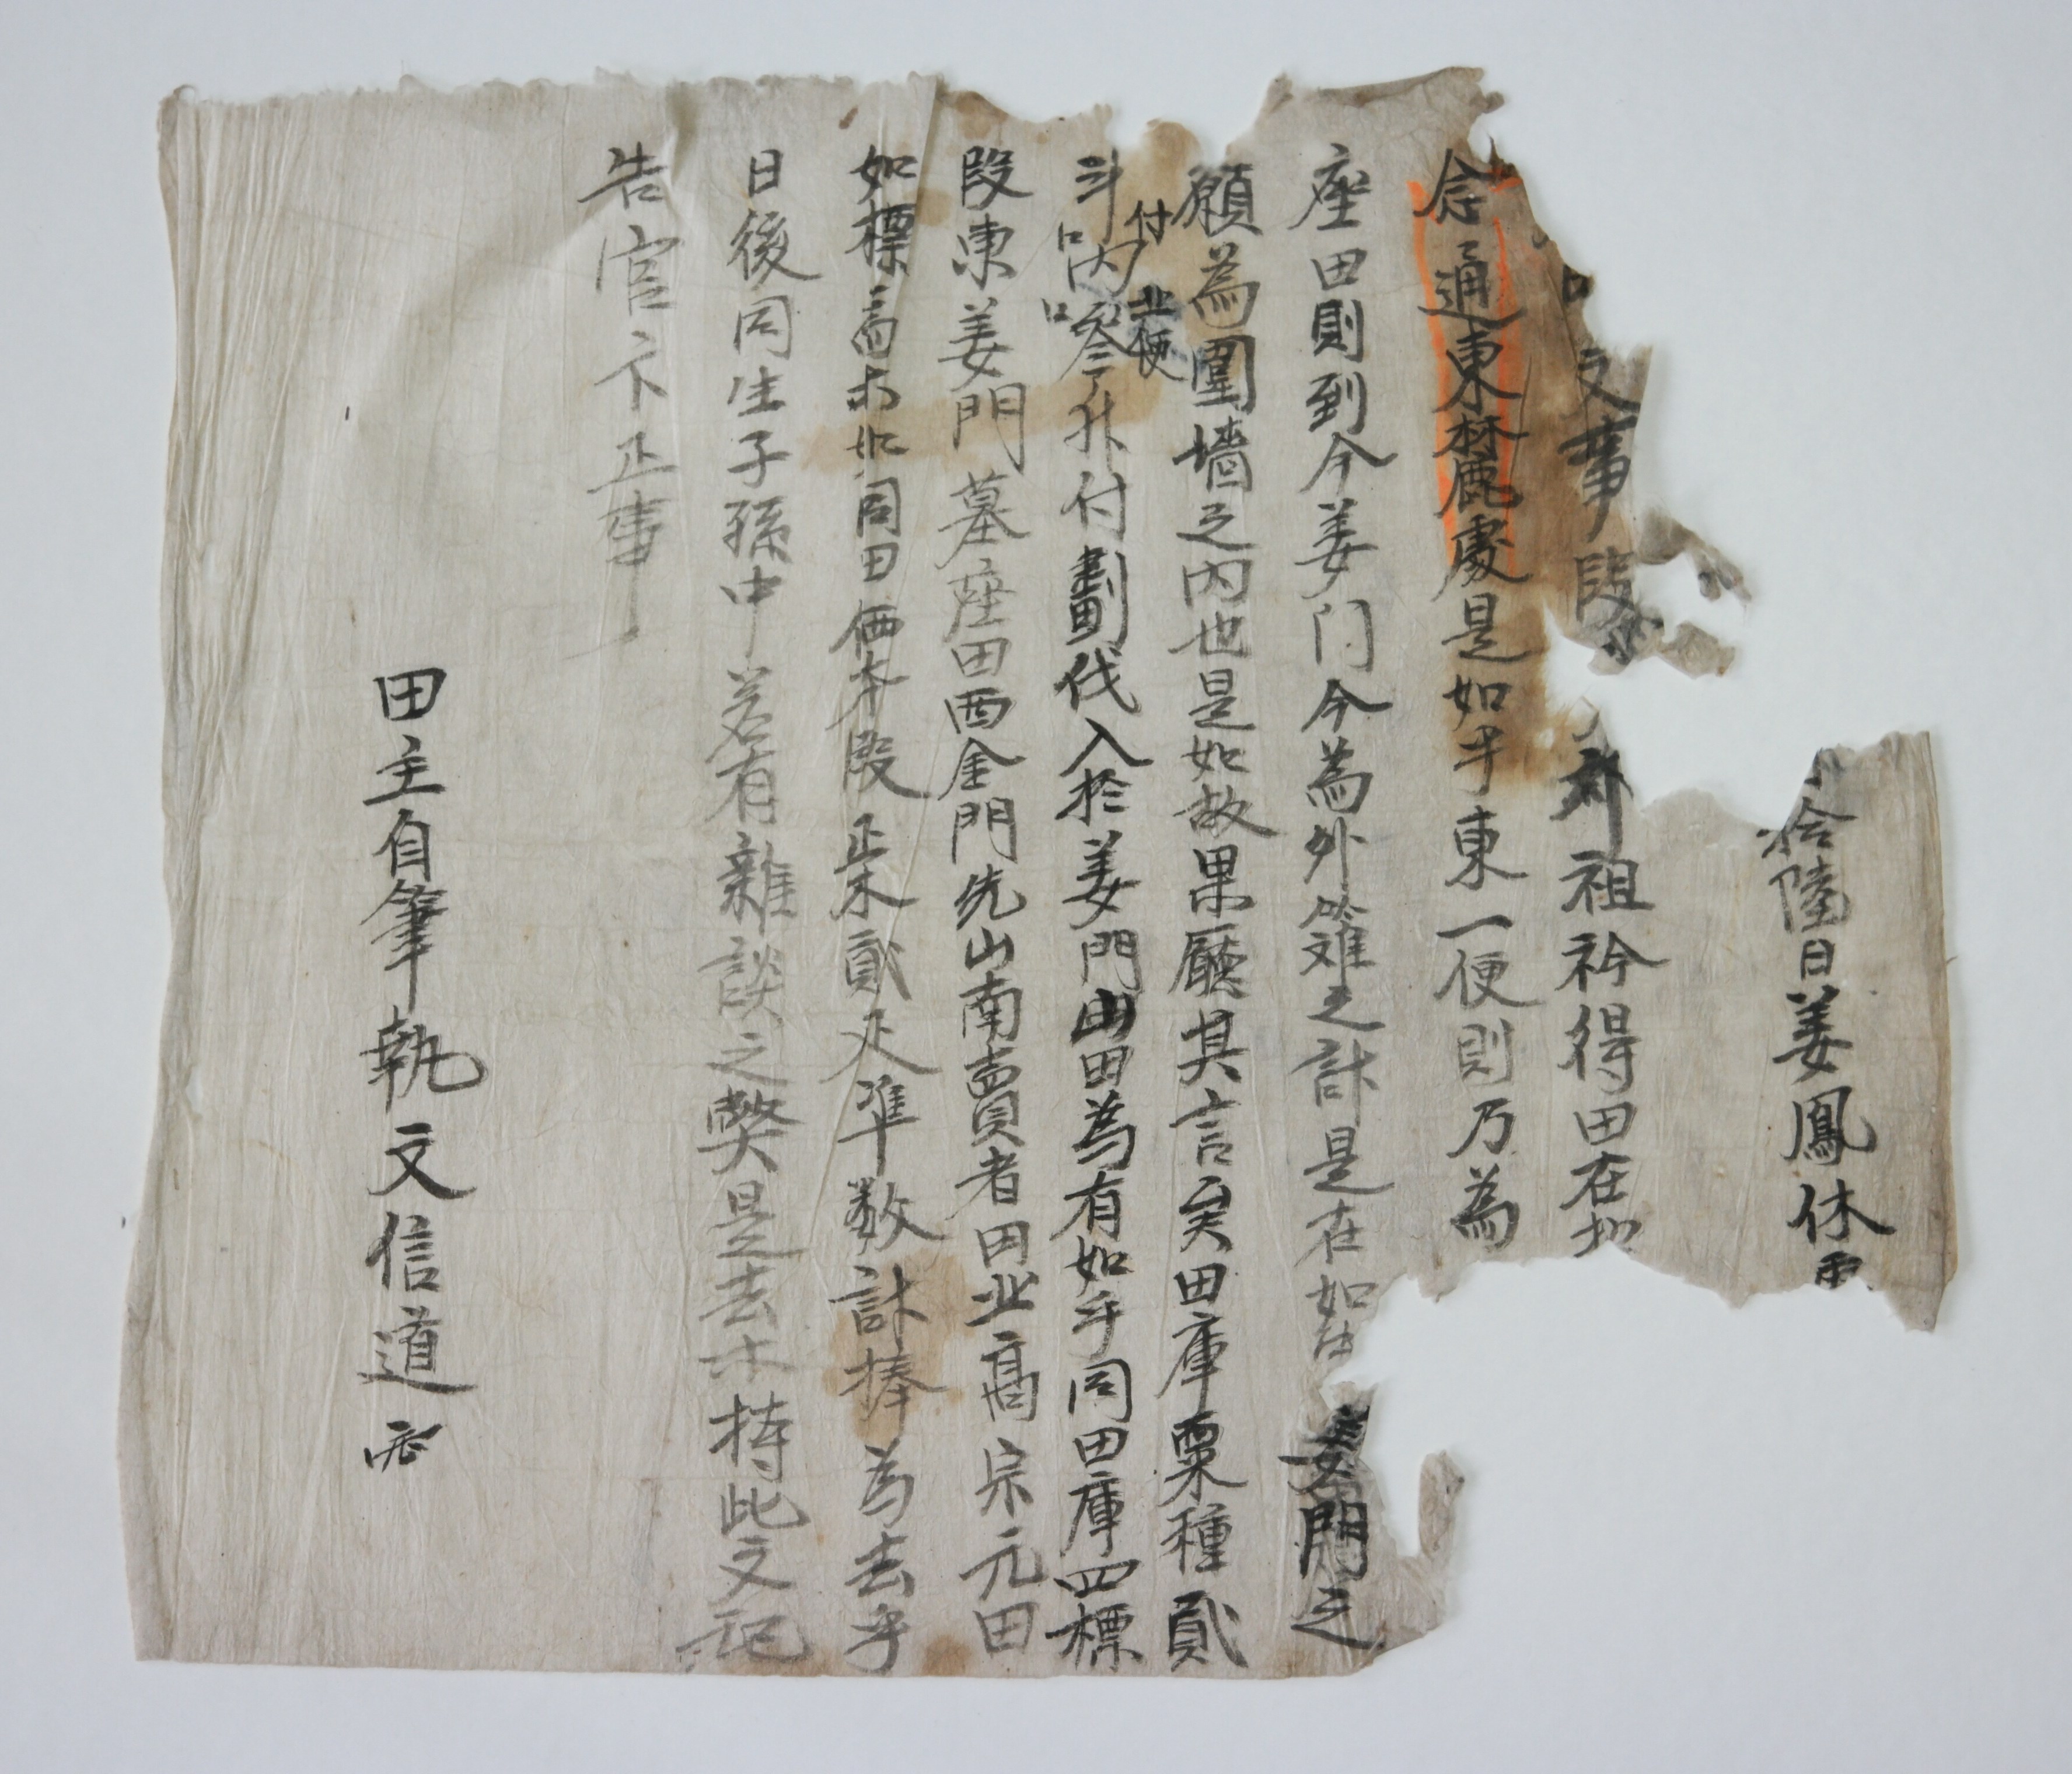 拾陸日姜鳳休
文事段 祖衿得田在
念通東麓處是如乎東一便則乃為
座田則到今姜门今為外籬之計是在如 姜門之
願為圍墻之内也是如故果廳其言矣田庫粟種貳
斗内叄升付劃伐入於姜門山田為有如乎同田庫四標
付北便
段東姜門墓座田西金門先山南賣者田北高宗元田
如標為㫆如同田価本段正木貳疋準数計捧為去乎
日後同生子孫中若有雜談之弊是去等持此文記
告官卞正事
田主自筆執文信道